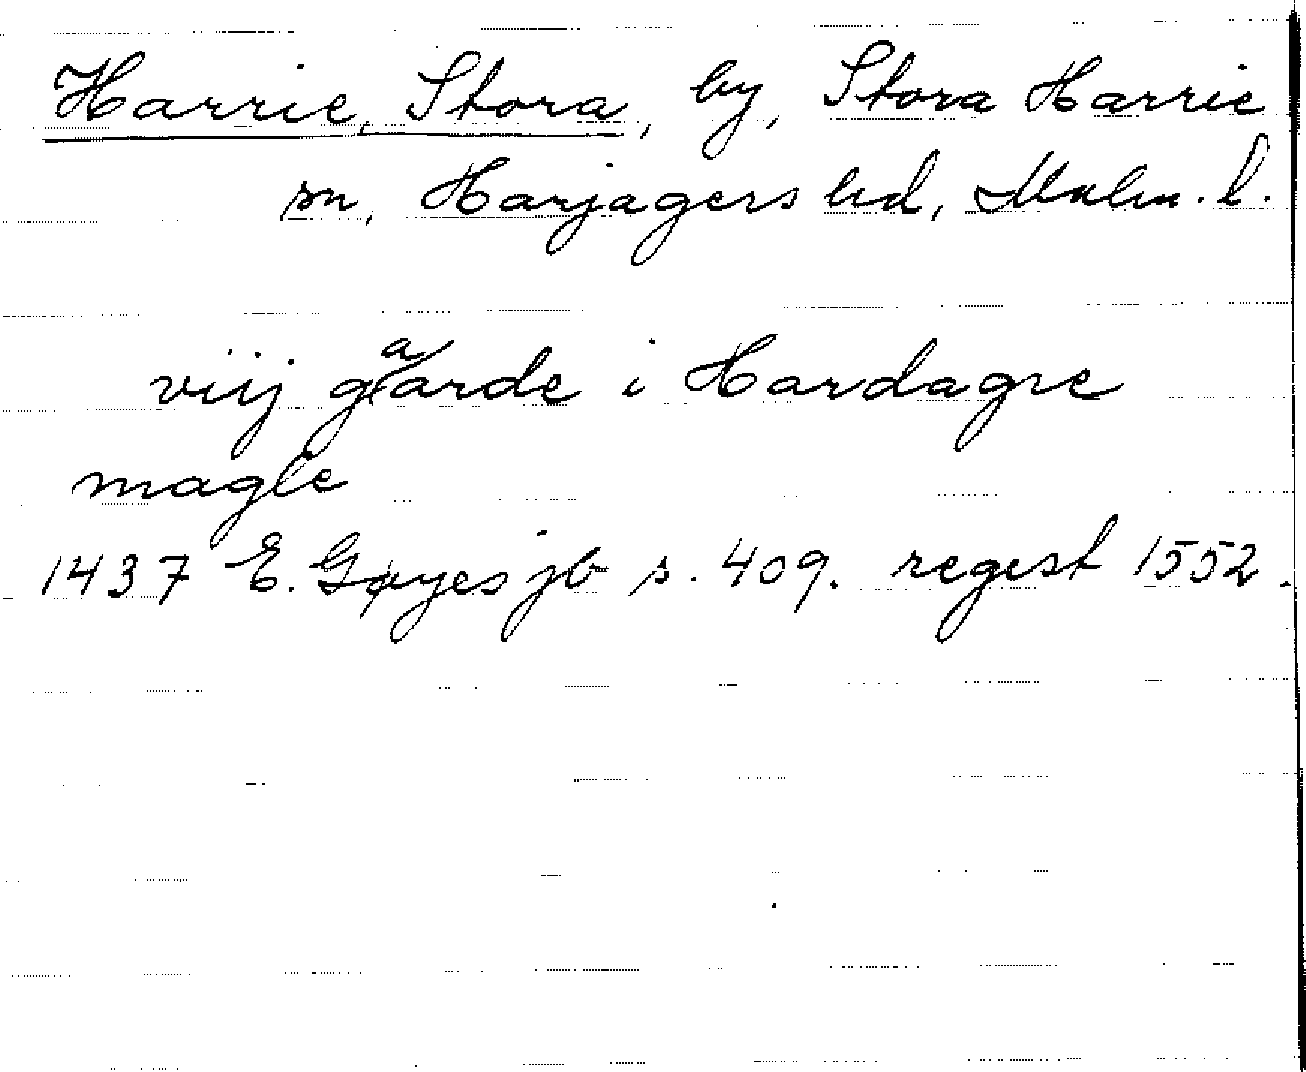 Harrie, Stora, by, Stora Harrie
sn, Harjagers hd, Malm. l.
viij gaarde i Hardagre
magle
1437 E. Gøyes jb s. 409. regest 1552.